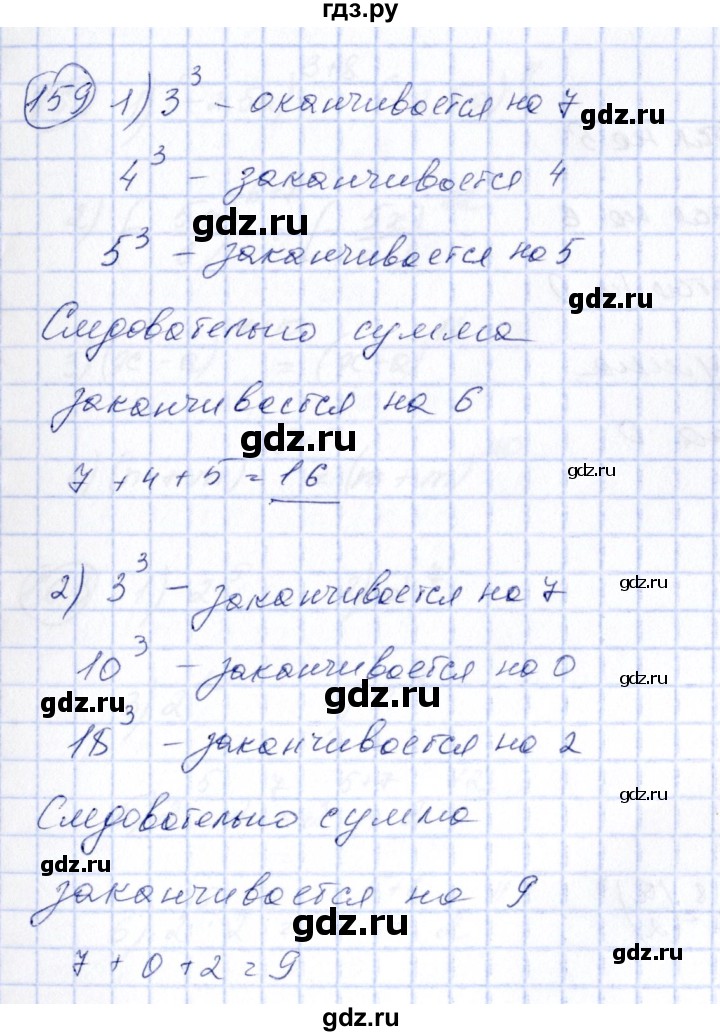 гдз.ру
159 1) 3³ – оканчивается на 7
gdz.ru
4³ – заканчивается 4
gdz.ru
5³ – заканчивается на 5
gdz.ru
Следовательно сумма
заканчивается на 6
gdz.ru
7 + 4 + 5 = 16
gdz.ru
2) 3³ – заканчивается на 7
gdz.ru
10³ – заканчивается на 0
gdz.ru
gdz.ru
gdz.ru
18³ – заканчивается на 2
gdz.ru
Следовательно сумма
gdz.ru
заканчивается на 9
gdz.ru
gdz.ru
7 + 0 + 2 = 9
gdz.ru